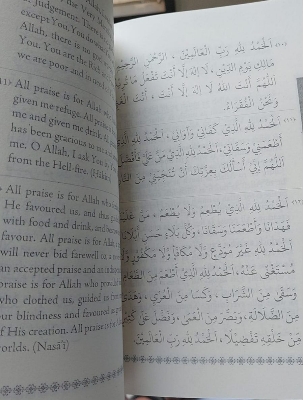 the Very
Judgement. Th
except You. You do w
Allah, there is no go
You. You are the R
we are poor and in need
All praise is for Allah Wh
given me refuge. All praise
me and given me drink. A
has been gracious to me
me. O Allāh, I ask You by
from the Hell-fire. (Ḥākim
All praise is for Allah
He favoured us, and
with food and drink, and
favour. All praise is for
will never bid farewell to
an accepted praise and
praise is for Allah who
who clothed us, guided us f
our blindness and favoured
of His creation. All praise
worlds. (Nasā'ī)
الْحَمْدُ لِلَّهِ رَبِّ الْعَالَمِينَ ، الرَّحْمَنِ الرَّحِيمِ
مَالِكِ يَوْمِ الدِّينِ ، لَا إِلَهَ إِلَّا أَنْتَ تَفْعَلُ مَا
اللَّهُمَّ أَنْتَ اللهُ لَا إِلَهَ إِلَّا أَنْتَ ، أَنْتَ
وَنَحْنُ الْفُقَرَاءُ.
الْحَمْدُ لِلَّهِ الَّذِي كَفَانِي وَآوَانِي ، الْحَمْدُ لِلَّهِ
أَطْعَمَنِي وَسَقَانِي ، الْحَمْدُ لِلَّهِ الَّذِي مَنَّ عَلَيَّ فَأَفْضَلَ
اللَّهُمَّ إِنِّي أَسْأَلُكَ بِعِزَّتِكَ أَنْ تُنَجِّيَنِي
الْحَمْدُ لِلَّهِ الَّذِي يُطْعِمُ وَلَا يُطْعَمُ ، مَنَّ عَلَيْنَا
فَهَدَانَا وَأَطْعَمَنَا وَسَقَانَا ، وَكُلَّ بَلَاءٍ حَسَنٍ أَبْلَانَا
الْحَمْدُ لِلَّهِ غَيْرَ مُوَدَّعٍ وَلَا مُكَافَإٍ وَلَا مَكْفُورٍ
مُسْتَغْنًى عَنْهُ ، الْحَمْدُ لِلَّهِ الَّذِي أَطْعَمَ مِنَ الطَّعَامِ
وَسَقَى مِنَ الشَّرَابِ ، وَكَسَا مِنَ الْعُرْيِ ، وَهَدَى
مِنَ الضَّلَالَةِ ، وَبَصَّرَ مِنَ الْعَمَى ، وَفَضَّلَ عَلَى
مِنْ خَلْقِهِ تَفْضِيلًا ، الْحَمْدُ لِلَّهِ رَبِّ الْعَالَمِينَ.